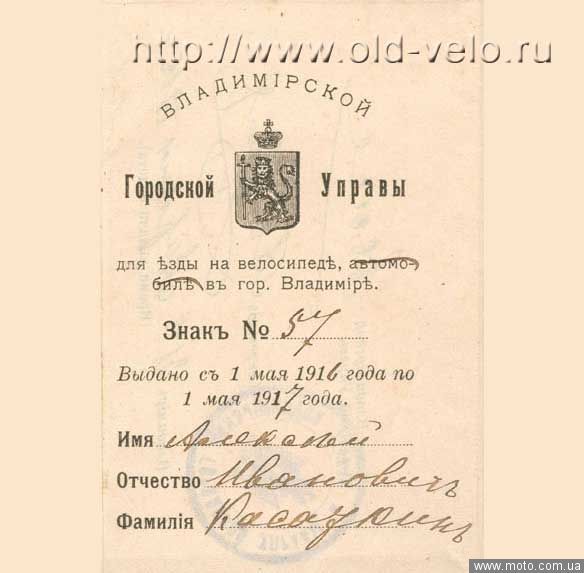 http://www.old-velo.ru
ВЛАДИМІРСКОЙ
Городской Управы
для ѣзды на велосипедѣ, автомо-
билѣ въ гор. Владимірѣ.
Знакъ № 57
Выдано съ 1 мая 1916 года по
1 мая 1917 года.
Имя Алексѣй
Отчество Ивановичъ
Фамилія Касаткинъ
www.moto.com.ua